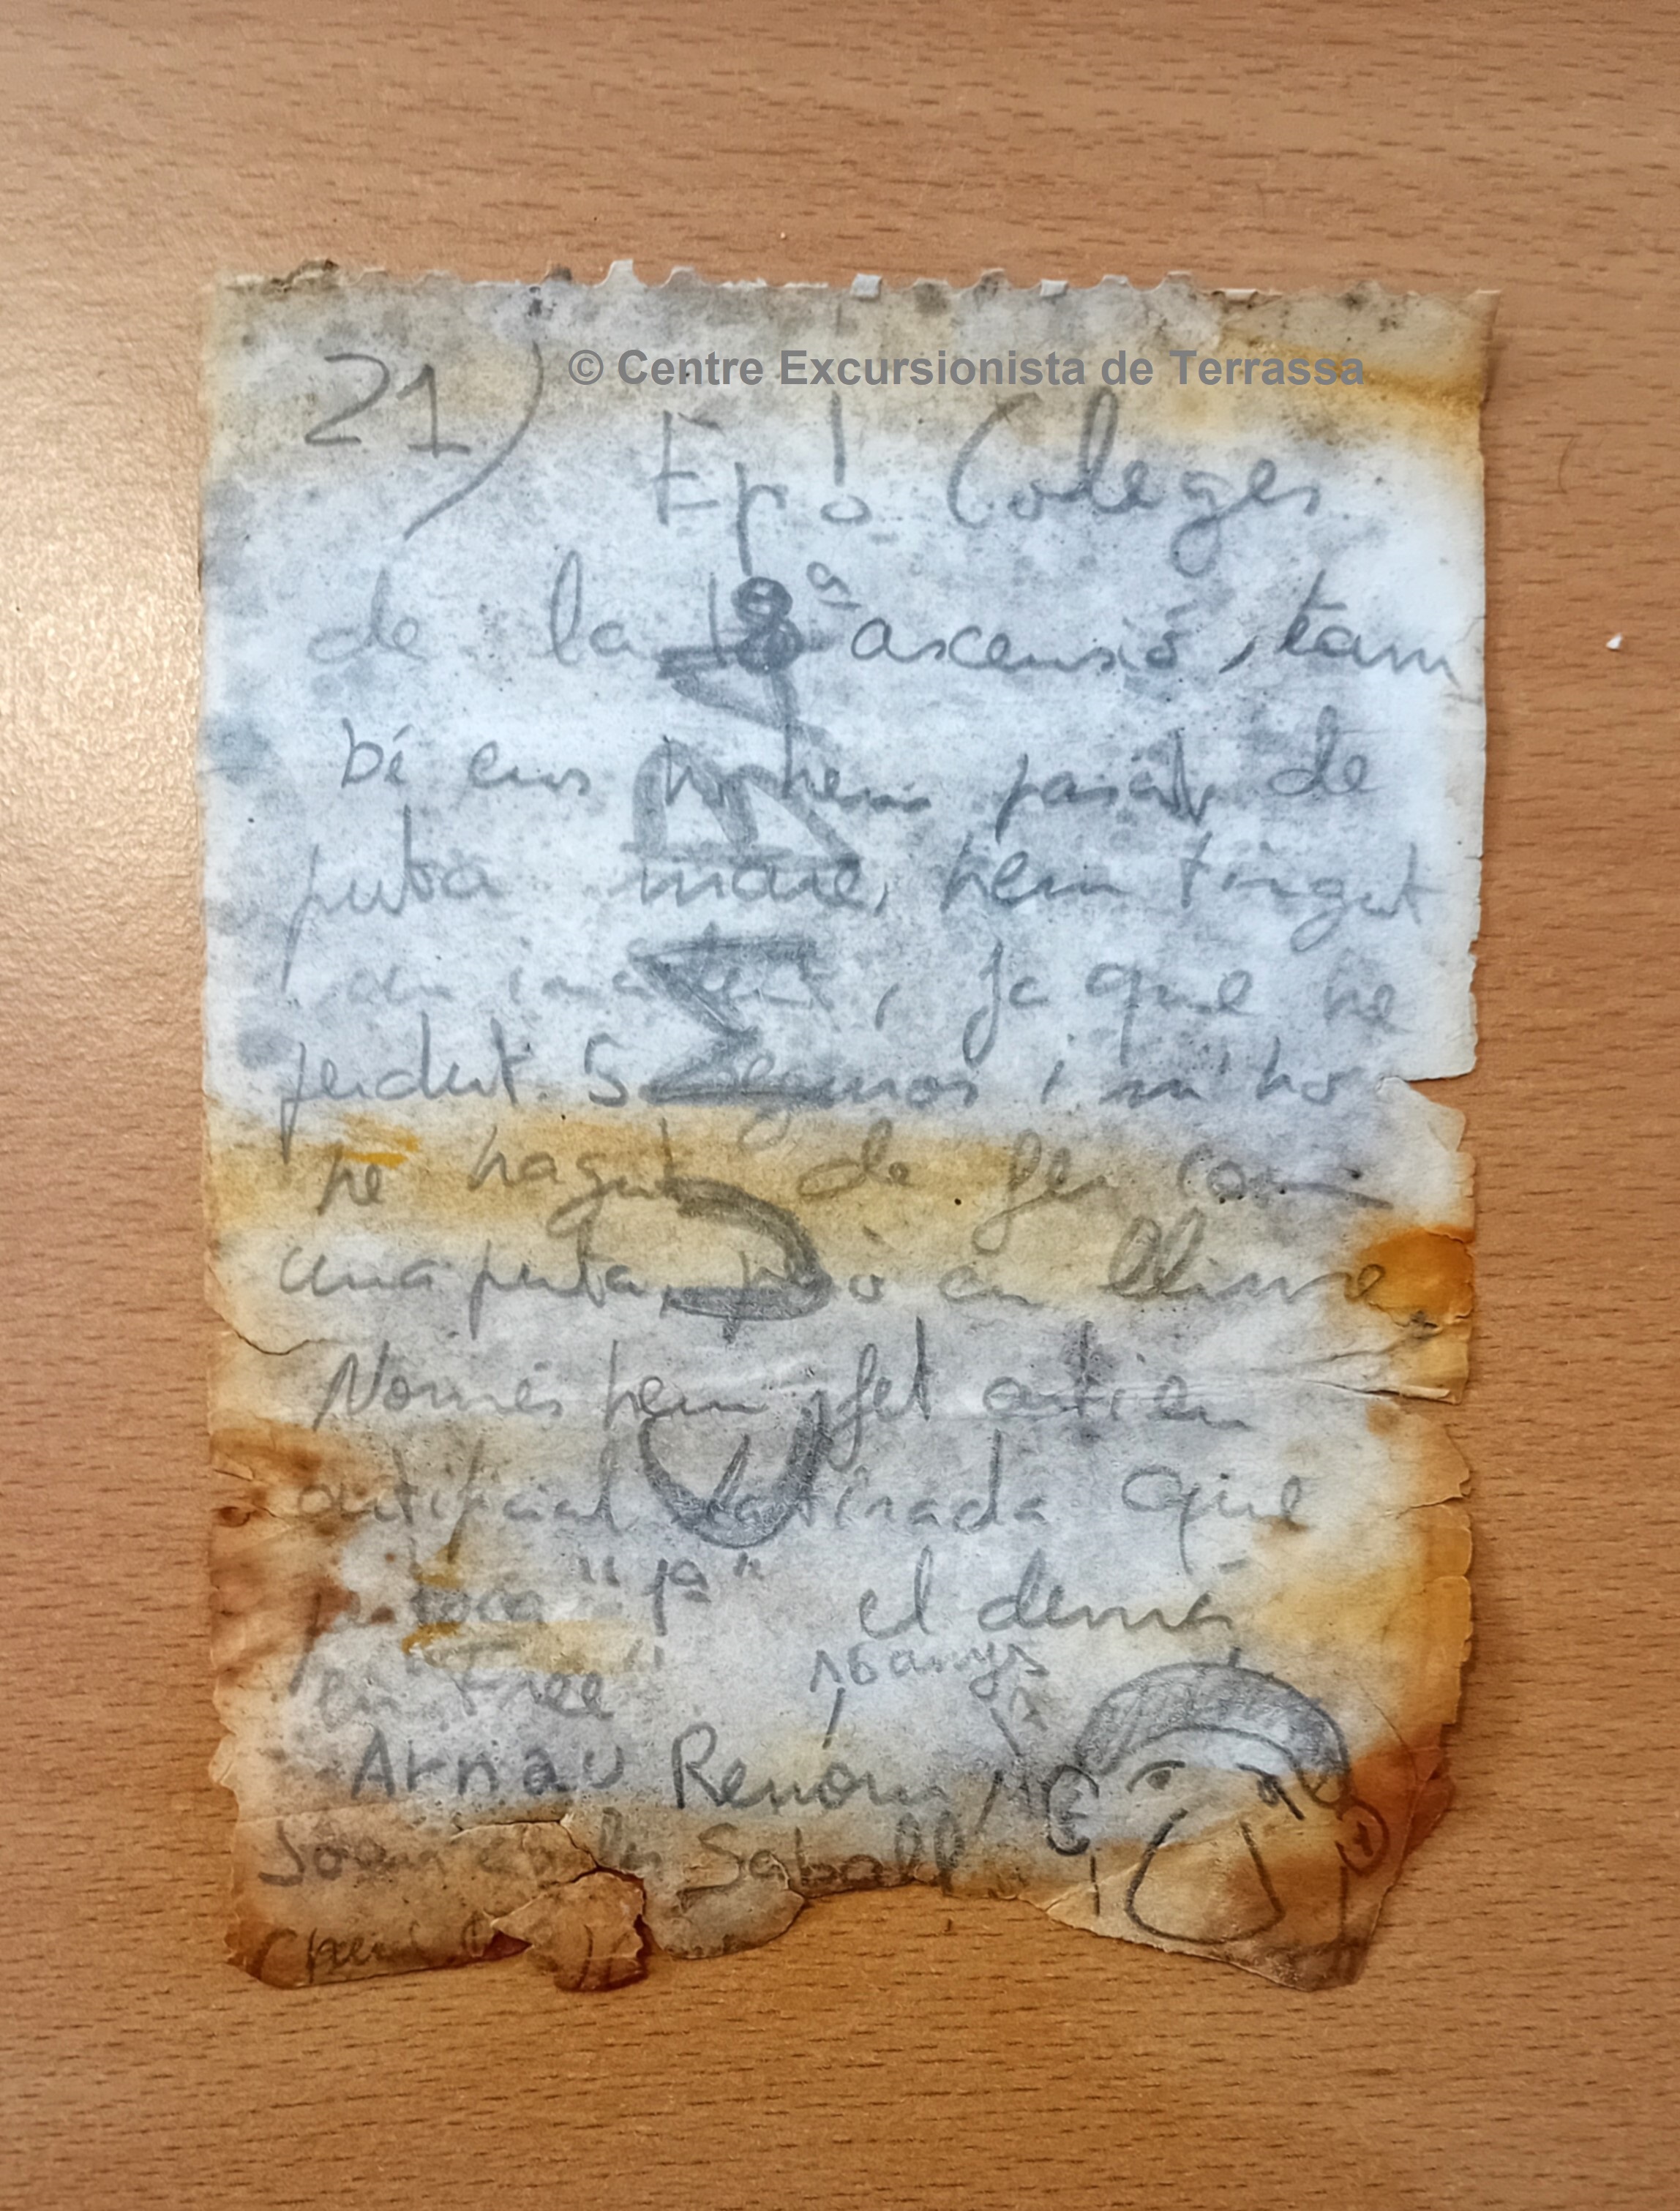 © Centre Excursionista de Terrassa
21)
Ep! Coleges
de la ascensió, tam
bé ens hem pasat de
puta mare, hem tingut
ja que he
perdut 5 i m'ho
he hagut de fer com
una puta, però en lliure
Només hem fet en
artificial la tirada que
toca "1ª" el demá
en "Free"
16 anys
Arnau Renom
Joan Saball